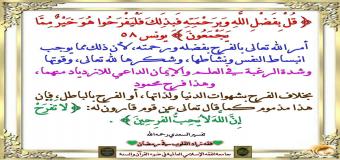 ﴿ قُلْ بِفَضْلِ اللَّهِ وَبِرَحْمَتِهِ فَبِذَلِكَ فَلْيَفْرَحُوا هُوَ خَيْرٌ مِمَّا
يَجْمَعُونَ ﴾ يونس ٥٨
أمر الله تعالى بالفرح بفضله ورحمته، لأن ذلك مما يوجب
انبساط النفس ونشاطها، وشكرها لله تعالى، وقوتها
وشدة الرغبة في العلم والإيمان الداعي للازدياد منهما،
وهذا فرح محمود
بخلاف الفرح بشهوات الدنيا ولذاتها، أو الفرح بالباطل، فإن
هذا مذموم كما قال تعالى عن قوم قارون له: ﴿ لَا تَفْرَحْ
إِنَّ اللَّهَ لَا يُحِبُّ الْفَرِحِينَ ﴾
تفسير السعدي رحمه الله